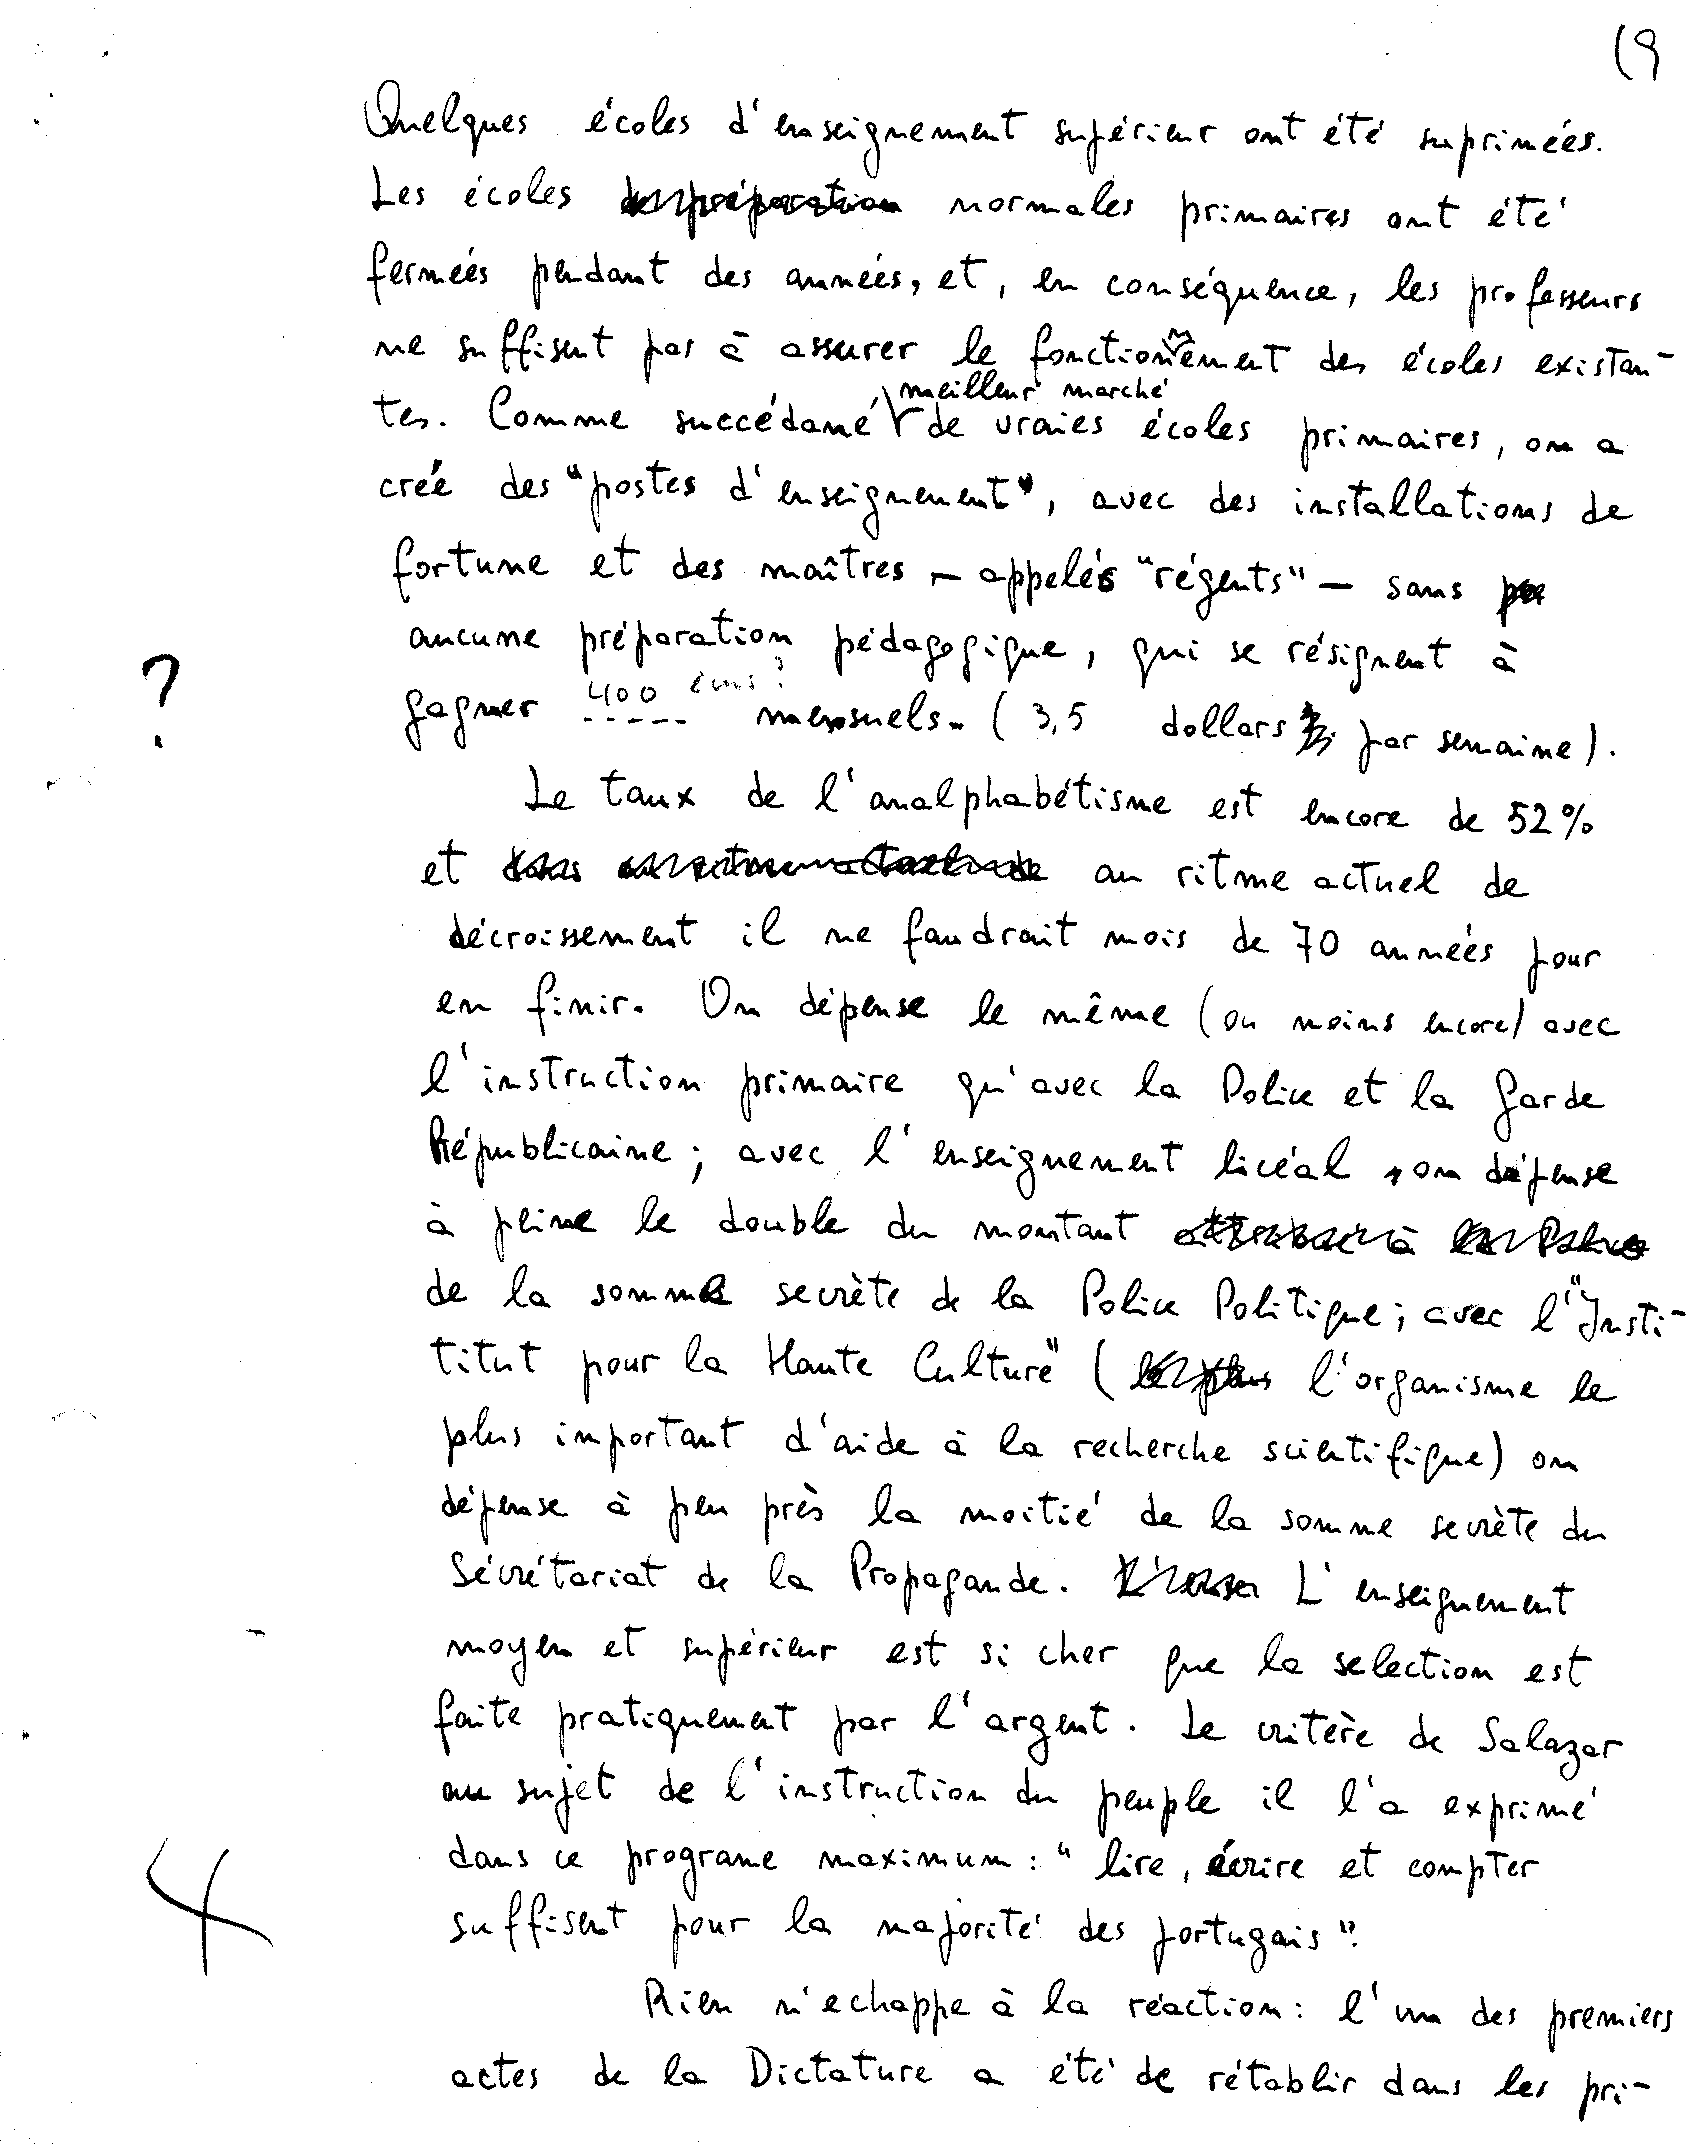 19
Quelques écoles d'enseignement supérieur ont été suprimées.
Les écoles normales primaires ont été
fermées pendant des années, et, en conséquence, les professeurs
ne suffisent pas à assurer le fonctionnement des écoles existan-
meilleur marché
tes. Comme succédané de vraies écoles primaires, on a
créé des "postes d'enseignement", avec des installations de
fortune et des maîtres — appelés "régents" — sans
aucune préparation pédagogique, qui se résignent à
?
400
gagner ----- mensuels. ( 3,5 dollars par semaine).
Le taux de l'analphabétisme est encore de 52%
et au ritme actuel de
décroissement il ne faudrait mois de 70 années pour
en finir. On dépense le même (ou moins encore) avec
l'instruction primaire qu'avec la Police et la Garde
Républicaine; avec l'enseignement licéal, on dépense
à peine le double du montant
de la somme secrète de la Police Politique; avec l'"Insti-
titut pour la Haute Culture" ( l'organisme le
plus important d'aide à la recherche scientifique) on
dépense à peu près la moitié de la somme secrète du
Sécrétariat de la Propagande. L'enseignement
moyen et supérieur est si cher que la selection est
faite pratiquement par l'argent. Le critère de Salazar
au sujet de l'instruction du peuple il l'a exprimé
dans ce programe maximum: "lire, écrire et compter
suffisent pour la majorité des portugais".
Rien n'echappe à la réaction: l'un des premiers
actes de la Dictature a été de rétablir dans les pri-